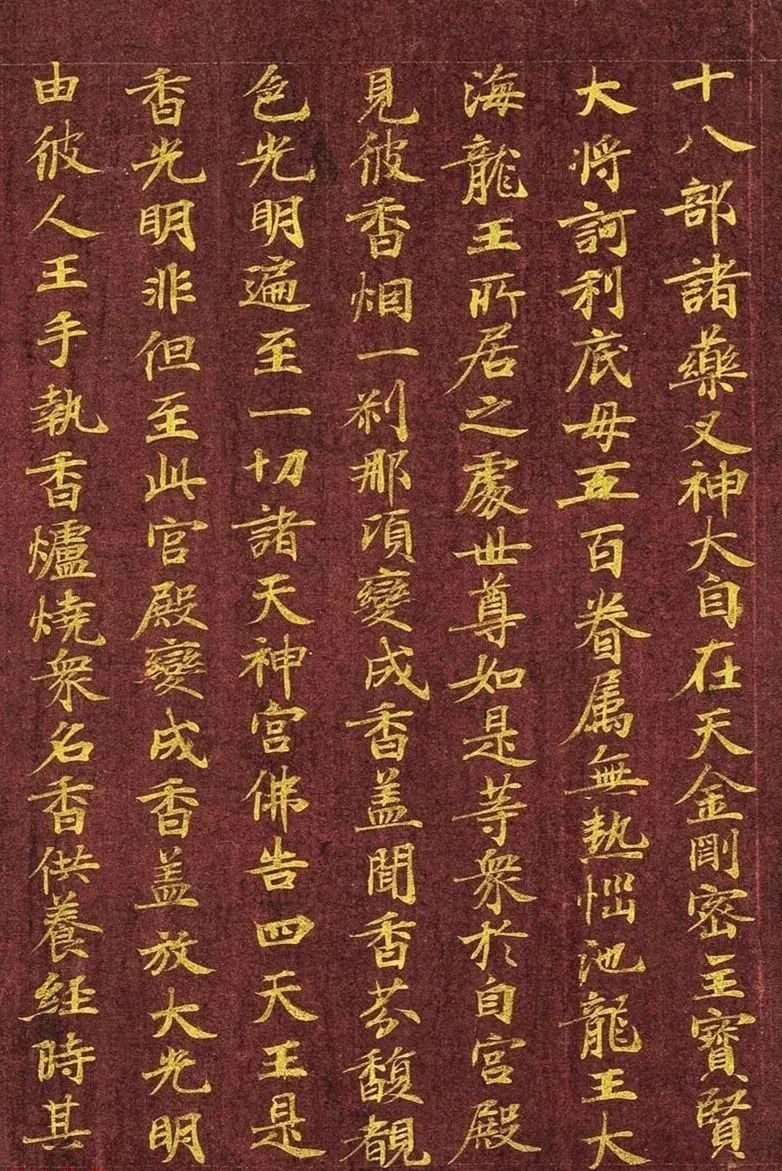 十八部諸藥叉神大自在天金剛密主寶賢
大將訶利底母五百眷属無熱惱池龍王大
海龍王所居之處世尊如是等衆於自宮殿
見彼香烟一刹那頃變成香盖聞香芬馥覩
色光明遍至一切諸天神宮佛告四天王是
香光明非但至此宮殿變成香盖放大光明
由彼人王手執香爐燒衆名香供養經時其